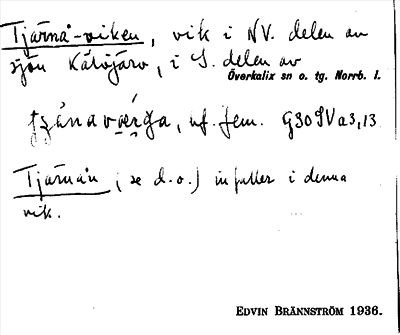 Tjärnå-viken, vik i NV. delen av
sjön Kälvjärv, i S. delen av
Överkalix sn o. tg. Norrb. l.
uf. fem. G30SVa3,13
Tjärnån (se d.o.) infaller i denna
vik.
EDVIN BRÄNNSTRÖM 1936.